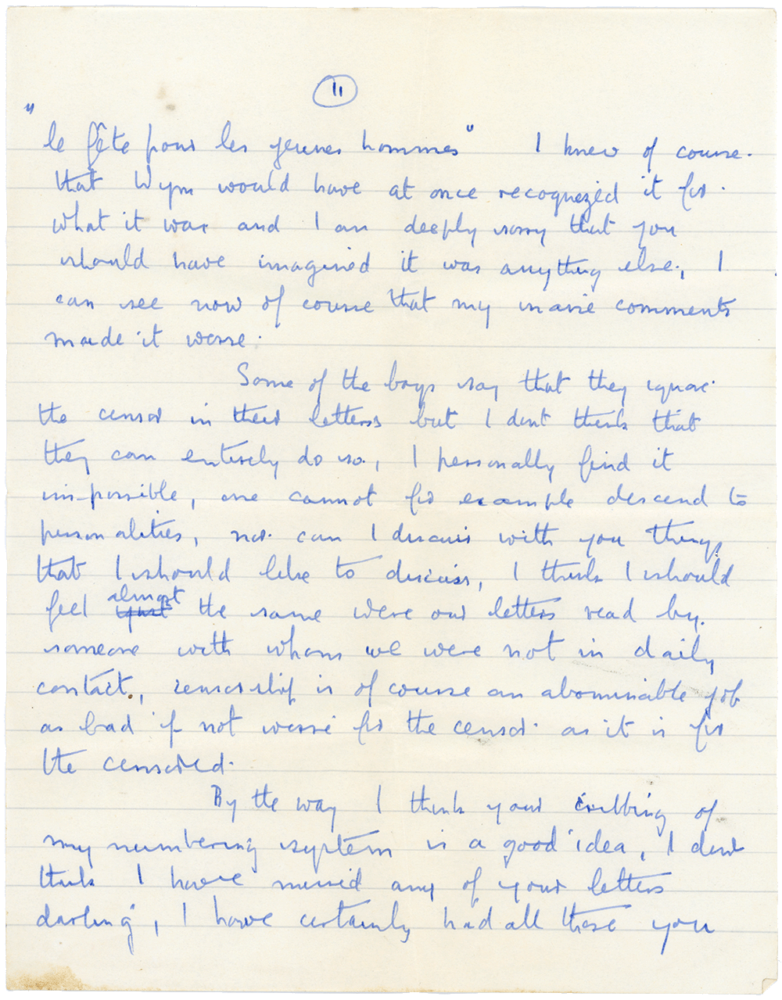 11
"le fête pour les jeunes hommes" I knew of course
that Wym would have at once recognized it for
what it was and I am deeply sorry that you
should have imagined it was anything else, I
can see now of course that my inane comments
made it worse.
Some of the boys say that they ignore
the censor in their letters but I dont think that
they can entirely do so, I personally find it
impossible, one cannot for example descend to
personalities, nor can I discuss with you things
that I should like to discuss, I think I should
feel almost the same were our letters read by
someone with whom we were not in daily
contact, censorship is of course an abominable job
as bad if not worse for the censor as it is for
the censored.
By the way I think your cribbing of
my numbering system is a good idea, I dont
think I have missed any of your letters
darling, I have certainly had all these you